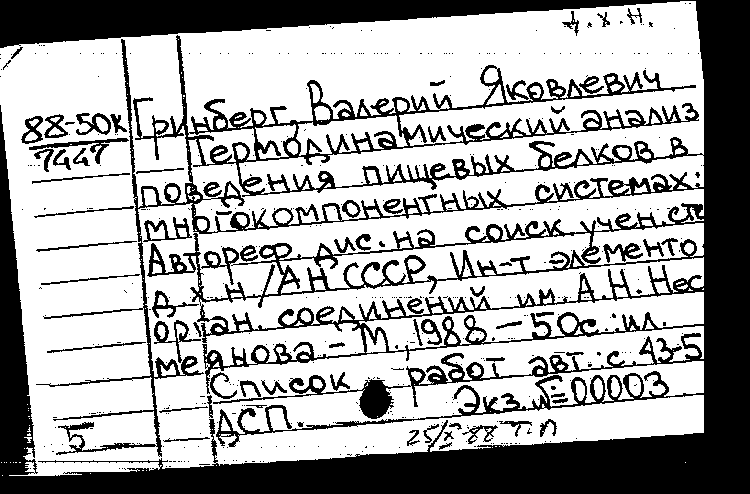 д.х.н.
88-50к
7447
Гринберг, Валерий Яковлевич
Термодинамический анализ
поведения пищевых белков в
многокомпонентных системах:
Автореф. дис. на соиск. учен. сте
д.х.н./АН СССР, Ин-т элементо
орган. соединений им. А.Н. Нес
меянова. - М., 1988. - 50с.: ил.
Список работ авт.: с. 43-5
ДСП. Экз. №=00003
5
25/X-88